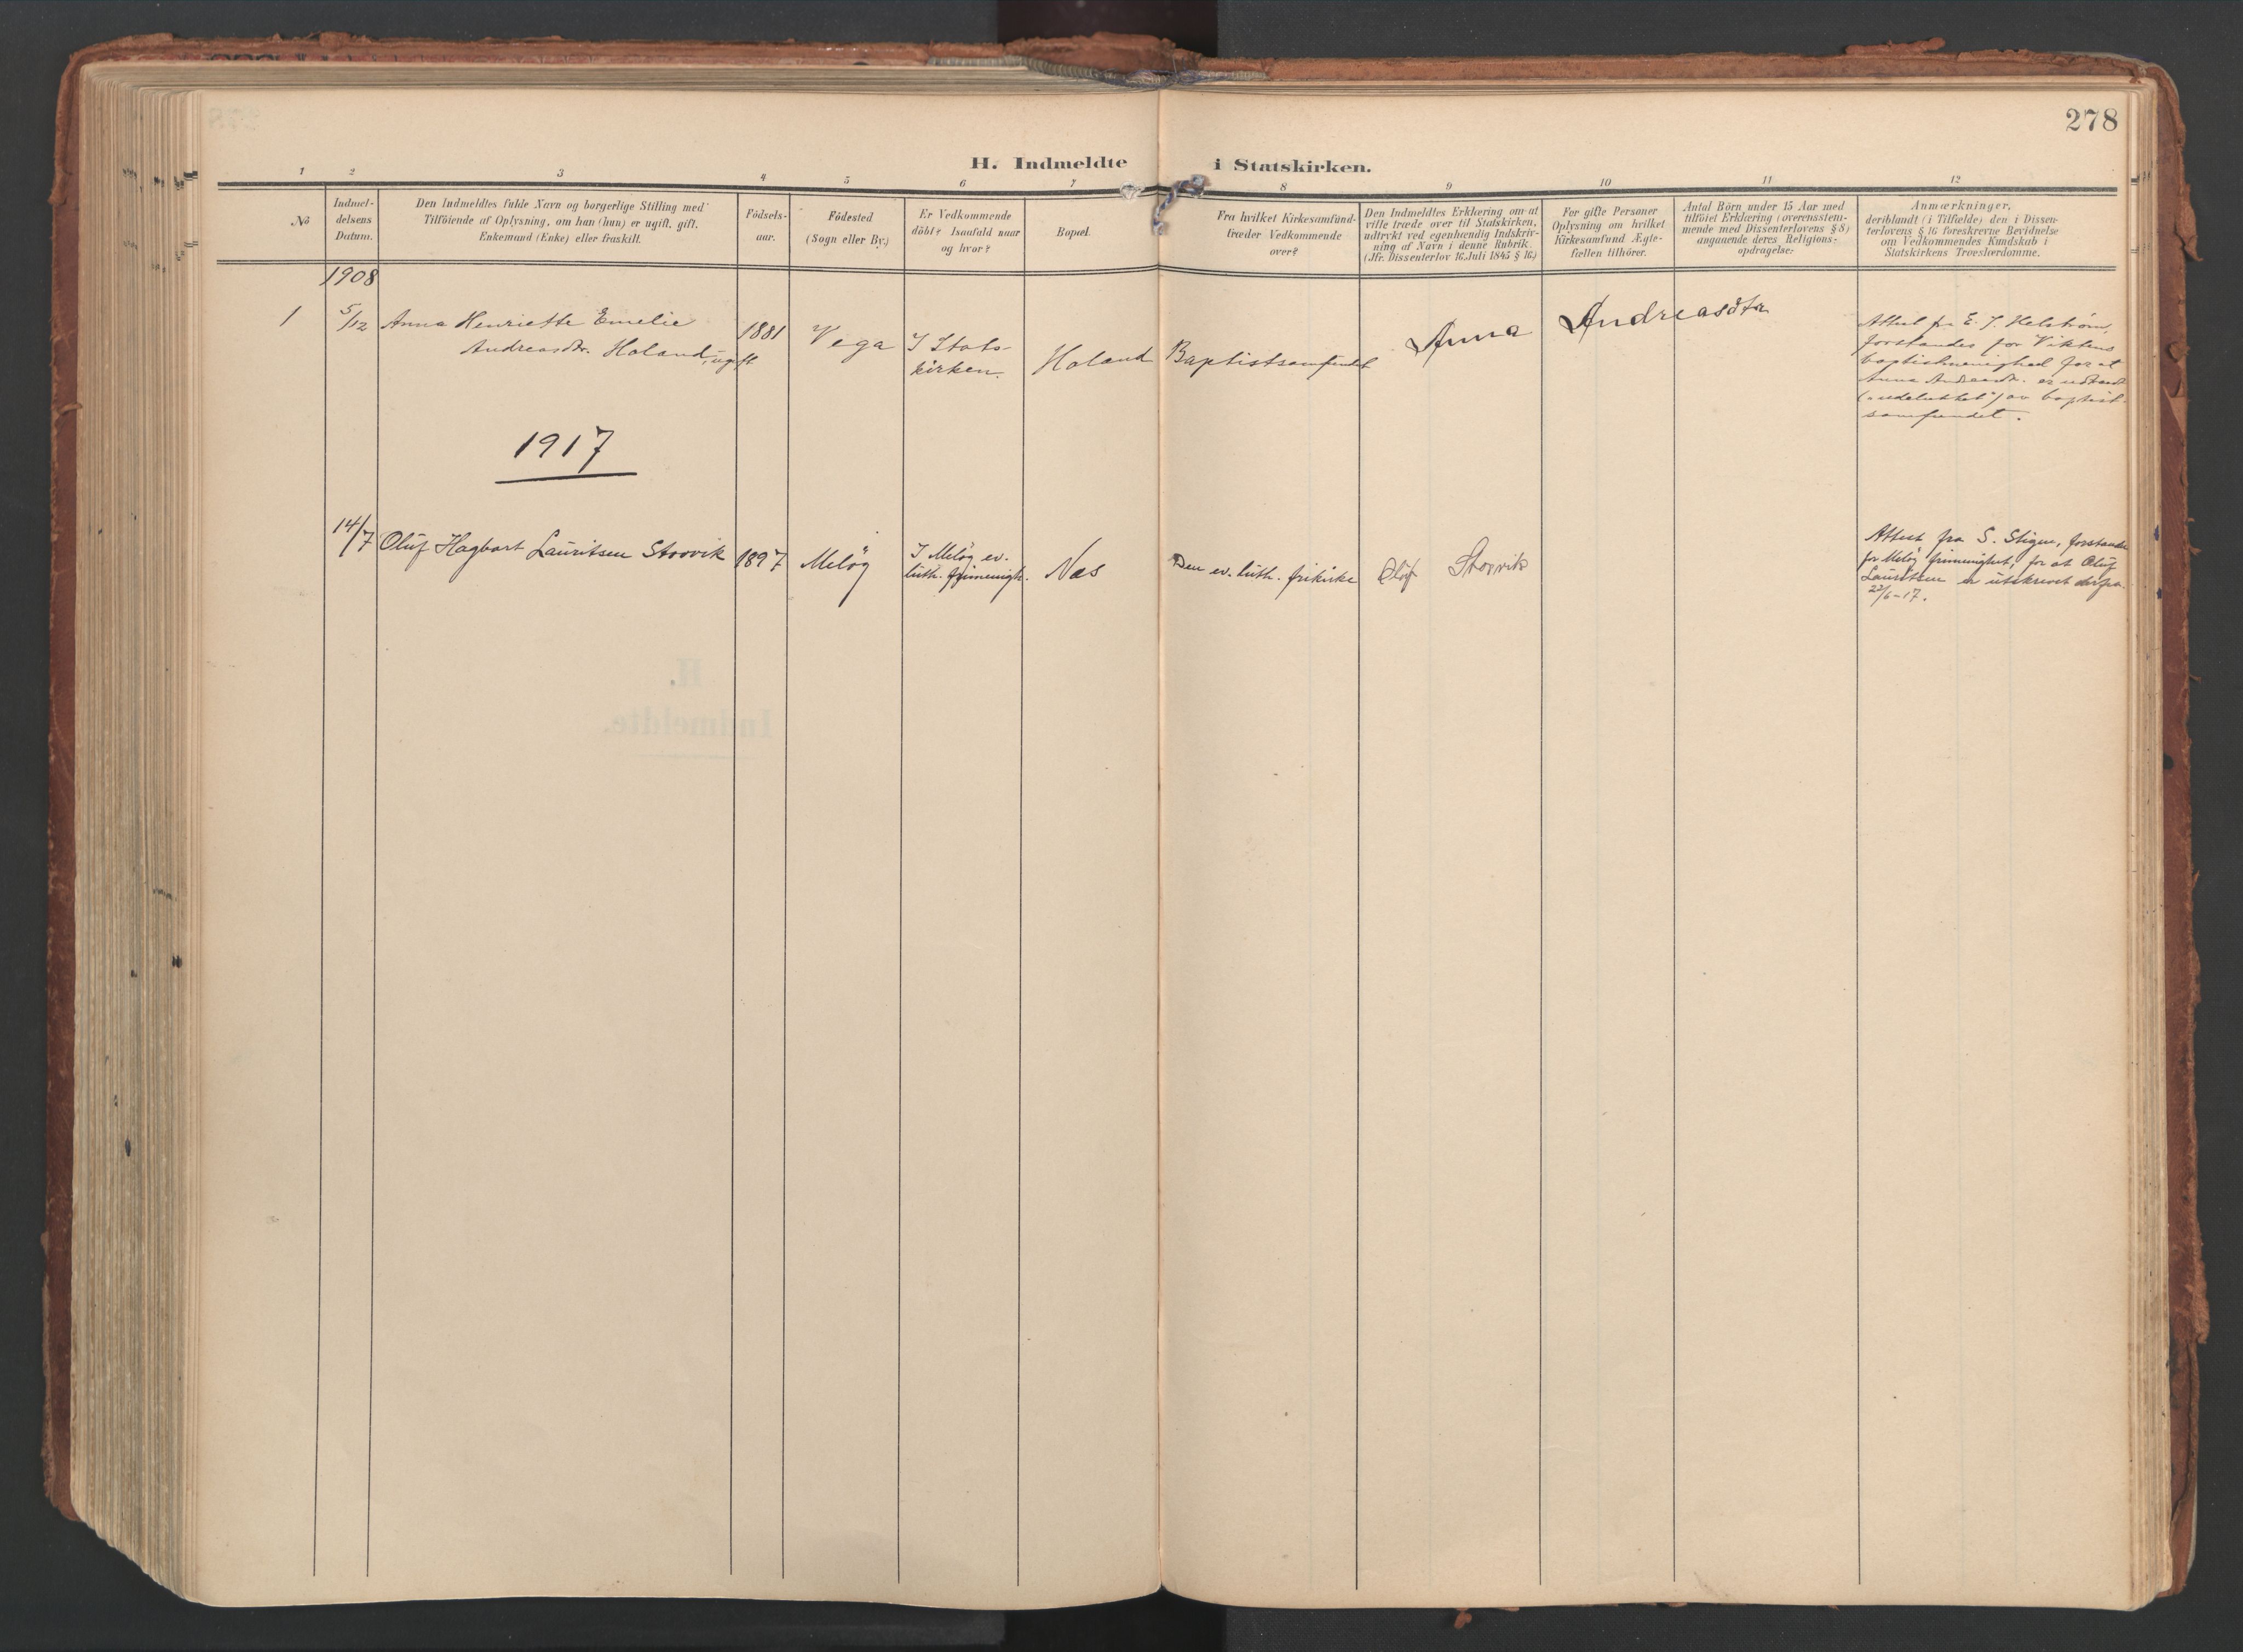 278
H. Indmeldte i Statskirken.
1 2 3 4 5 6 7 8 9 10 11 12
No
Indmel-
delsens
Datum.
Den Indmeldtes fulde Navn og borgerlige Stilling med
Tilföiende af Oplysning, om han (hun) er ugift, gift,
Enkemand (Enke) eller fraskilt.
Födsels-
aar.
Födested
(Sogn eller By.)
Er Vedkommende
döbt? Isaafald naar
og hvor?
Bopæl.
Fra hvilket Kirkesamfund
træder Vedkommende
over?
Den Indmeldtes Erklæring om at
ville træde over til Statskirken,
udtrykt ved egenhændig Indskriv-
ning af Navn i denne Rubrik.
(Jfr. Dissenterlov 16. Juli 1845 § 16.)
For gifte Personer
Oplysning om hvilket
Kirkesamfund Ægte-
fællen tilhörer.
Antal Börn under 15 Aar med
tilföiet Erklæring (overensstem-
mende med Dissenterlovens § 8)
angaaende deres Religions-
opdragelse.
Anmærkninger,
deriblandt (i Tilfælde) den i Dissen-
terlovens § 16 foreskrevne Bevidnelse
om Vedkommendes Kundskab i
Statskirkens Troeslærdomme.
1908
1
5/12
Anna Henriette Emelie
Andreasdtr. Holand, ugift
1881
Vega
I Stats-
kirken.
Holand
Baptistsamfundet
Anna Andreasdtr
Attest fra E. J. Helström,
forstander for Viktens
baptistmenighed for at
Anna Andreasdr. er udtraadt
("udelukket") av baptist-
samfundet.
1917
14/7
Oluf Hagbart Lauritsen Storvik
1897
Melöy
I Melöy ev.
luth. frimenigh.
Nes
Den ev. luth. frikirke
Olöf Storvik
Attest fra S. Stigen, forstander
for Melöy frimenighet, for at Oluf
Lauritsen er utskrevet derfra
22/6-17.
H.
Indmeldte.